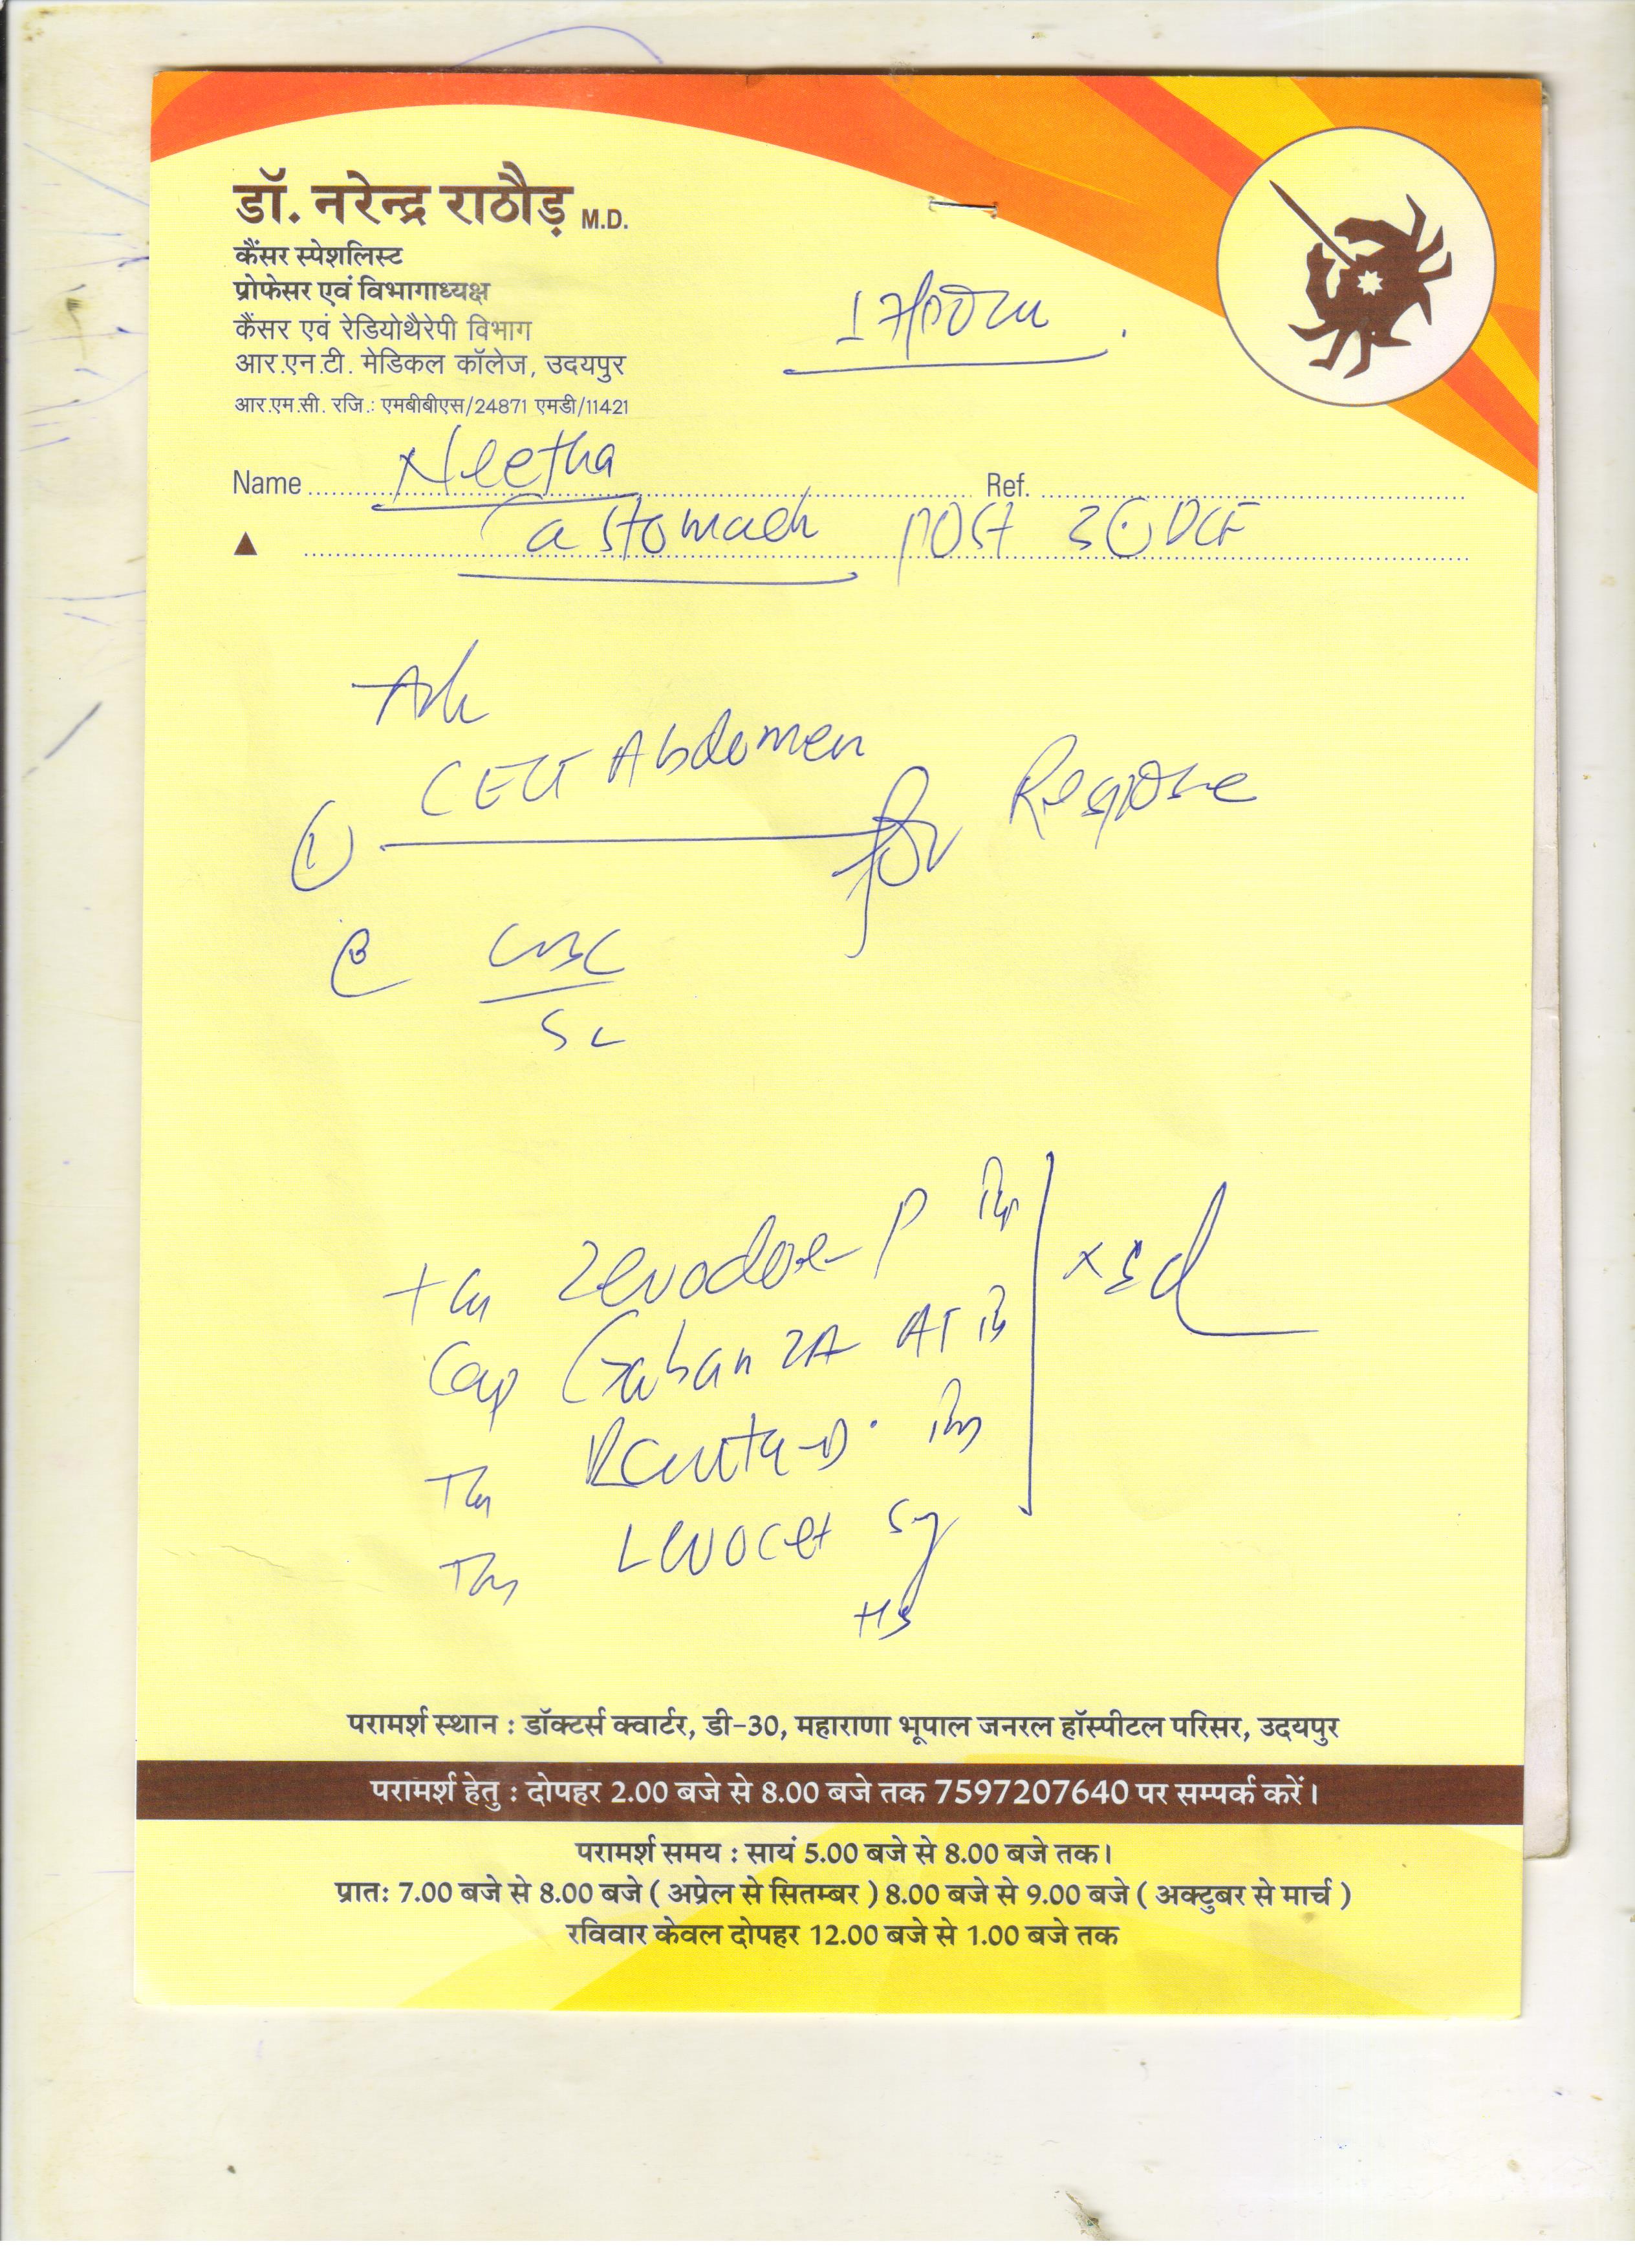 डॉ. नरेन्द्र राठौड़ M.D.
कैंसर स्पेशलिस्ट
प्रोफेसर एवं विभागाध्यक्ष
कैंसर एवं रेडियोथैरेपी विभाग
आर.एन.टी. मेडिकल कॉलेज, उदयपुर
आर.एम.सी. रजि.: एमबीबीएस/24871 एमडी/11421
Name Neetha Ref.
Ca stomach post 3 DCF
Adv
① CECT Abdomen for Response
② CBC
Zerodol-P
Cap Gaban
Levocet 5mg
HS
परामर्श स्थान : डॉक्टर्स क्वार्टर, डी-30, महाराणा भूपाल जनरल हॉस्पीटल परिसर, उदयपुर
परामर्श हेतु : दोपहर 2.00 बजे से 8.00 बजे तक 7597207640 पर सम्पर्क करें।
परामर्श समय : सायं 5.00 बजे से 8.00 बजे तक।
प्रात: 7.00 बजे से 8.00 बजे ( अप्रेल से सितम्बर ) 8.00 बजे से 9.00 बजे ( अक्टुबर से मार्च )
रविवार केवल दोपहर 12.00 बजे से 1.00 बजे तक